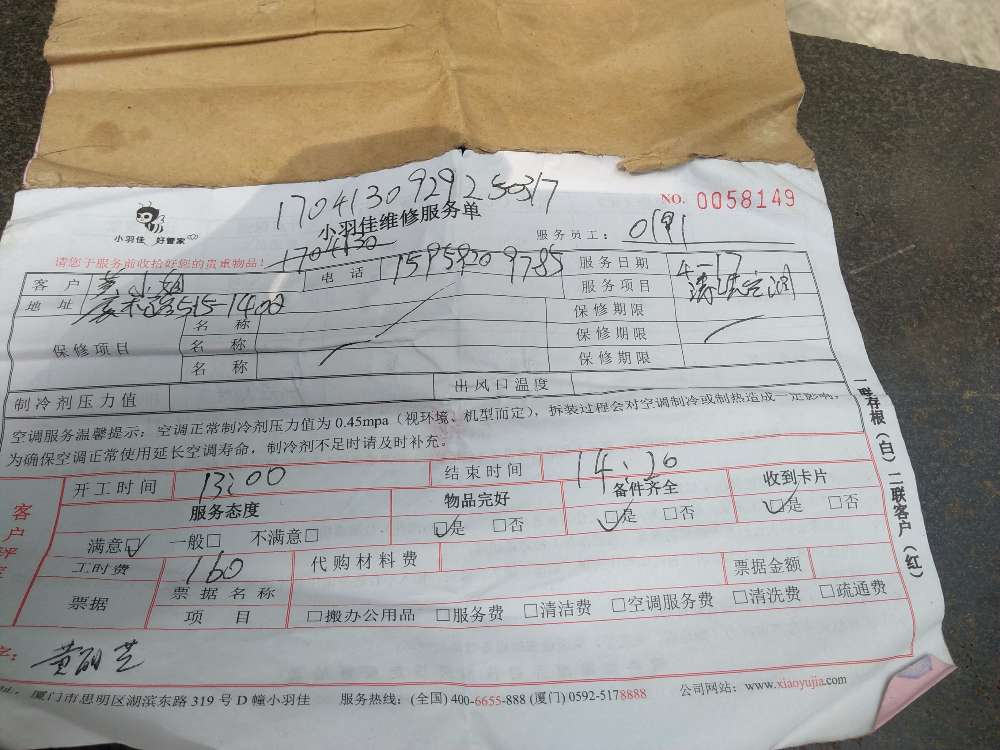 NO. 0058149
小羽佳 好管家
小羽佳维修服务单
服务员工：
请您于服务前收拾好您的贵重物品！ 1704130
客 户 黄小姐 电 话 服务日期 4-17
地 址 515-1400 服务项目 清洗空调
保修项目 名 称 保修期限
名 称 保修期限
名 称 保修期限
制冷剂压力值 出风口温度
空调服务温馨提示：空调正常制冷剂压力值为 0.45mpa（视环境、机型而定），拆装过程会对空调制冷或制热造成一定影响，
为确保空调正常使用延长空调寿命，制冷剂不足时请及时补充。
一联存根（白）二联客户（红）
开工时间 13:00 结束时间 14:20
客户评
服务态度 物品完好 备件齐全 收到卡片
满意☑ 一般□ 不满意□ ☑是 □否 ☑是 □否 ☑是 □否
工时费 160 代购材料费 票据金额
票据 票据名称
项 目 □搬办公用品 □服务费 □清洁费 □空调服务费 □清洗费 □疏通费
字： 黄丽芝
厦门市思明区湖滨东路 319 号 D 幢小羽佳 服务热线：(全国) 400-6655-888 (厦门) 0592-5178888 公司网站：www.xiaoyujia.com